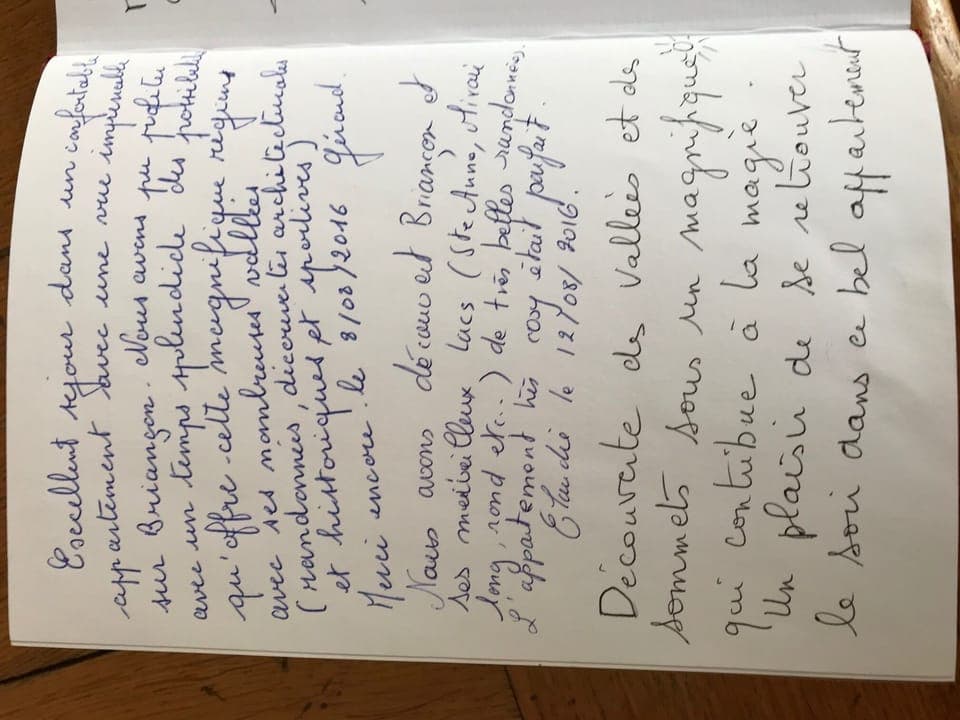 Excellent séjour dans un confortable
appartement avec une vue imprenable
sur Briançon. Nous avons pu profiter
avec un temps splendide des possibilités
qu'offre cette magnifique région
avec ses nombreuses vallées
(randonnées, découvertes architecturales
et historiques et sportives)
Merci encore. le 8/08/2016 Gérard.
Nous avons découvert Briançon et
ses merveilleux lacs (Ste Anne, Miroir
long, rond etc..) de très belles randonnées.
L'appartement très cosy était parfait.
Elandié le 12/08/2016.
Découverte des vallées et des
sommets sous un magnifique
qui contribue à la magie.
Un plaisir de se retrouver
le soir dans ce bel appartement